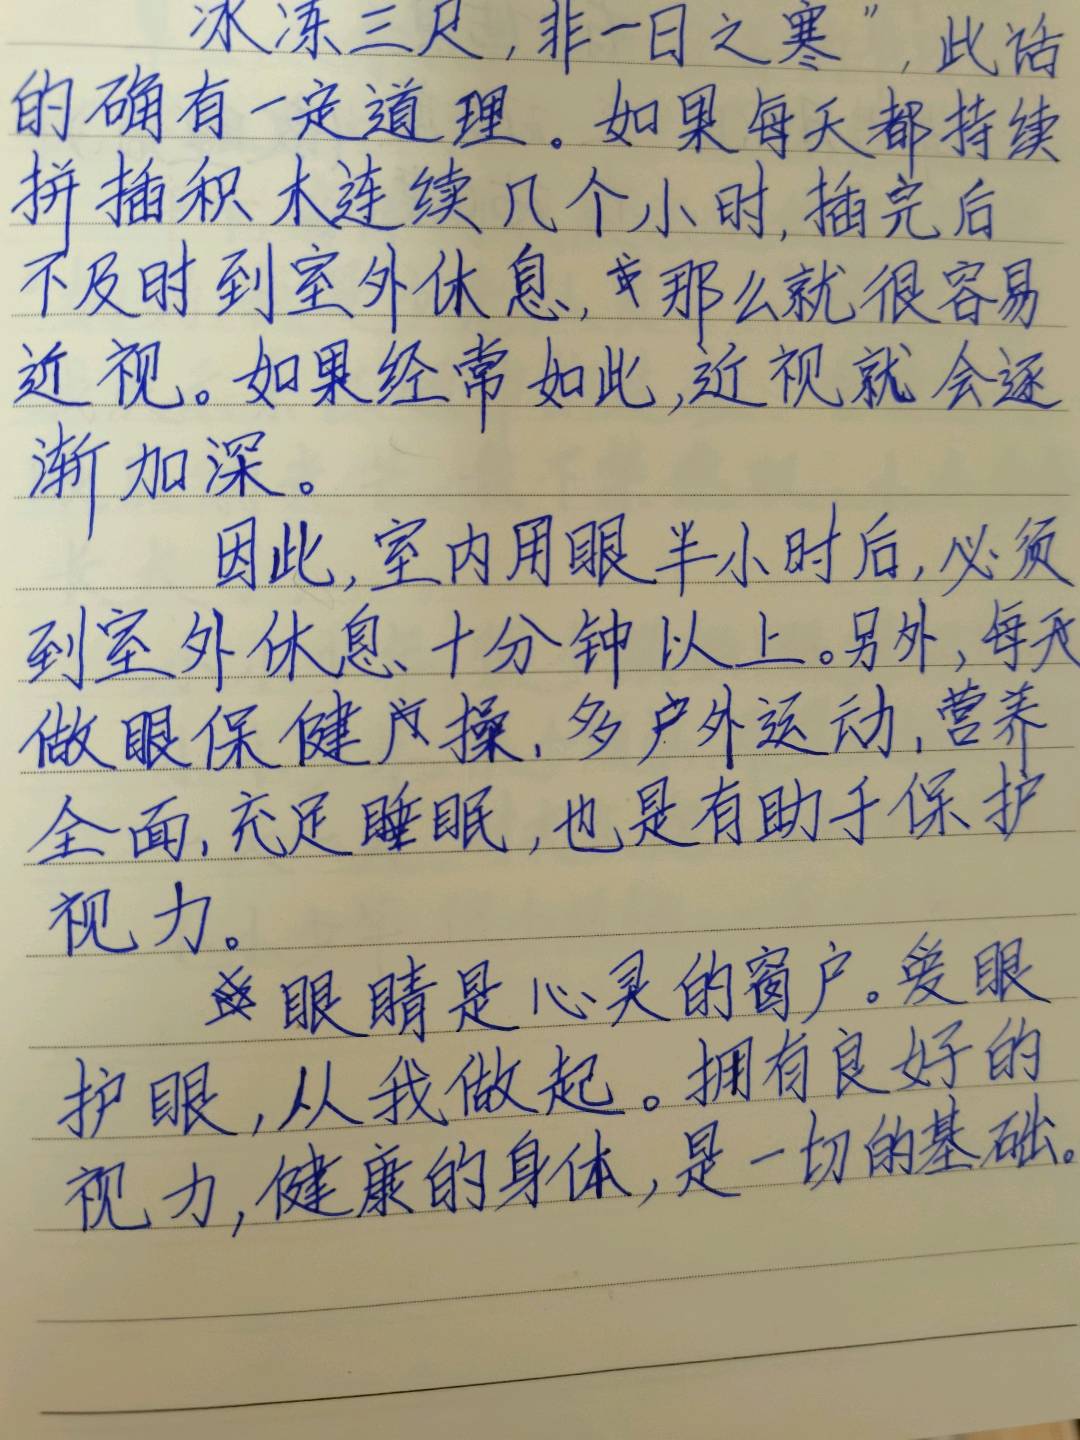 冰冻三尺，非一日之寒”，此话
的确有一定道理。如果每天都持续
拼插积木连续几个小时，插完后
不及时到室外休息，那么就很容易
近视。如果经常如此，近视就会逐
渐加深。
因此，室内用眼半小时后，必须
到室外休息十分钟以上。另外，每天
做眼保健操，多户外运动，营养
全面，充足睡眠，也是有助于保护
视力。
眼睛是心灵的窗户。爱眼
护眼，从我做起。拥有良好的
视力，健康的身体，是一切的基础。